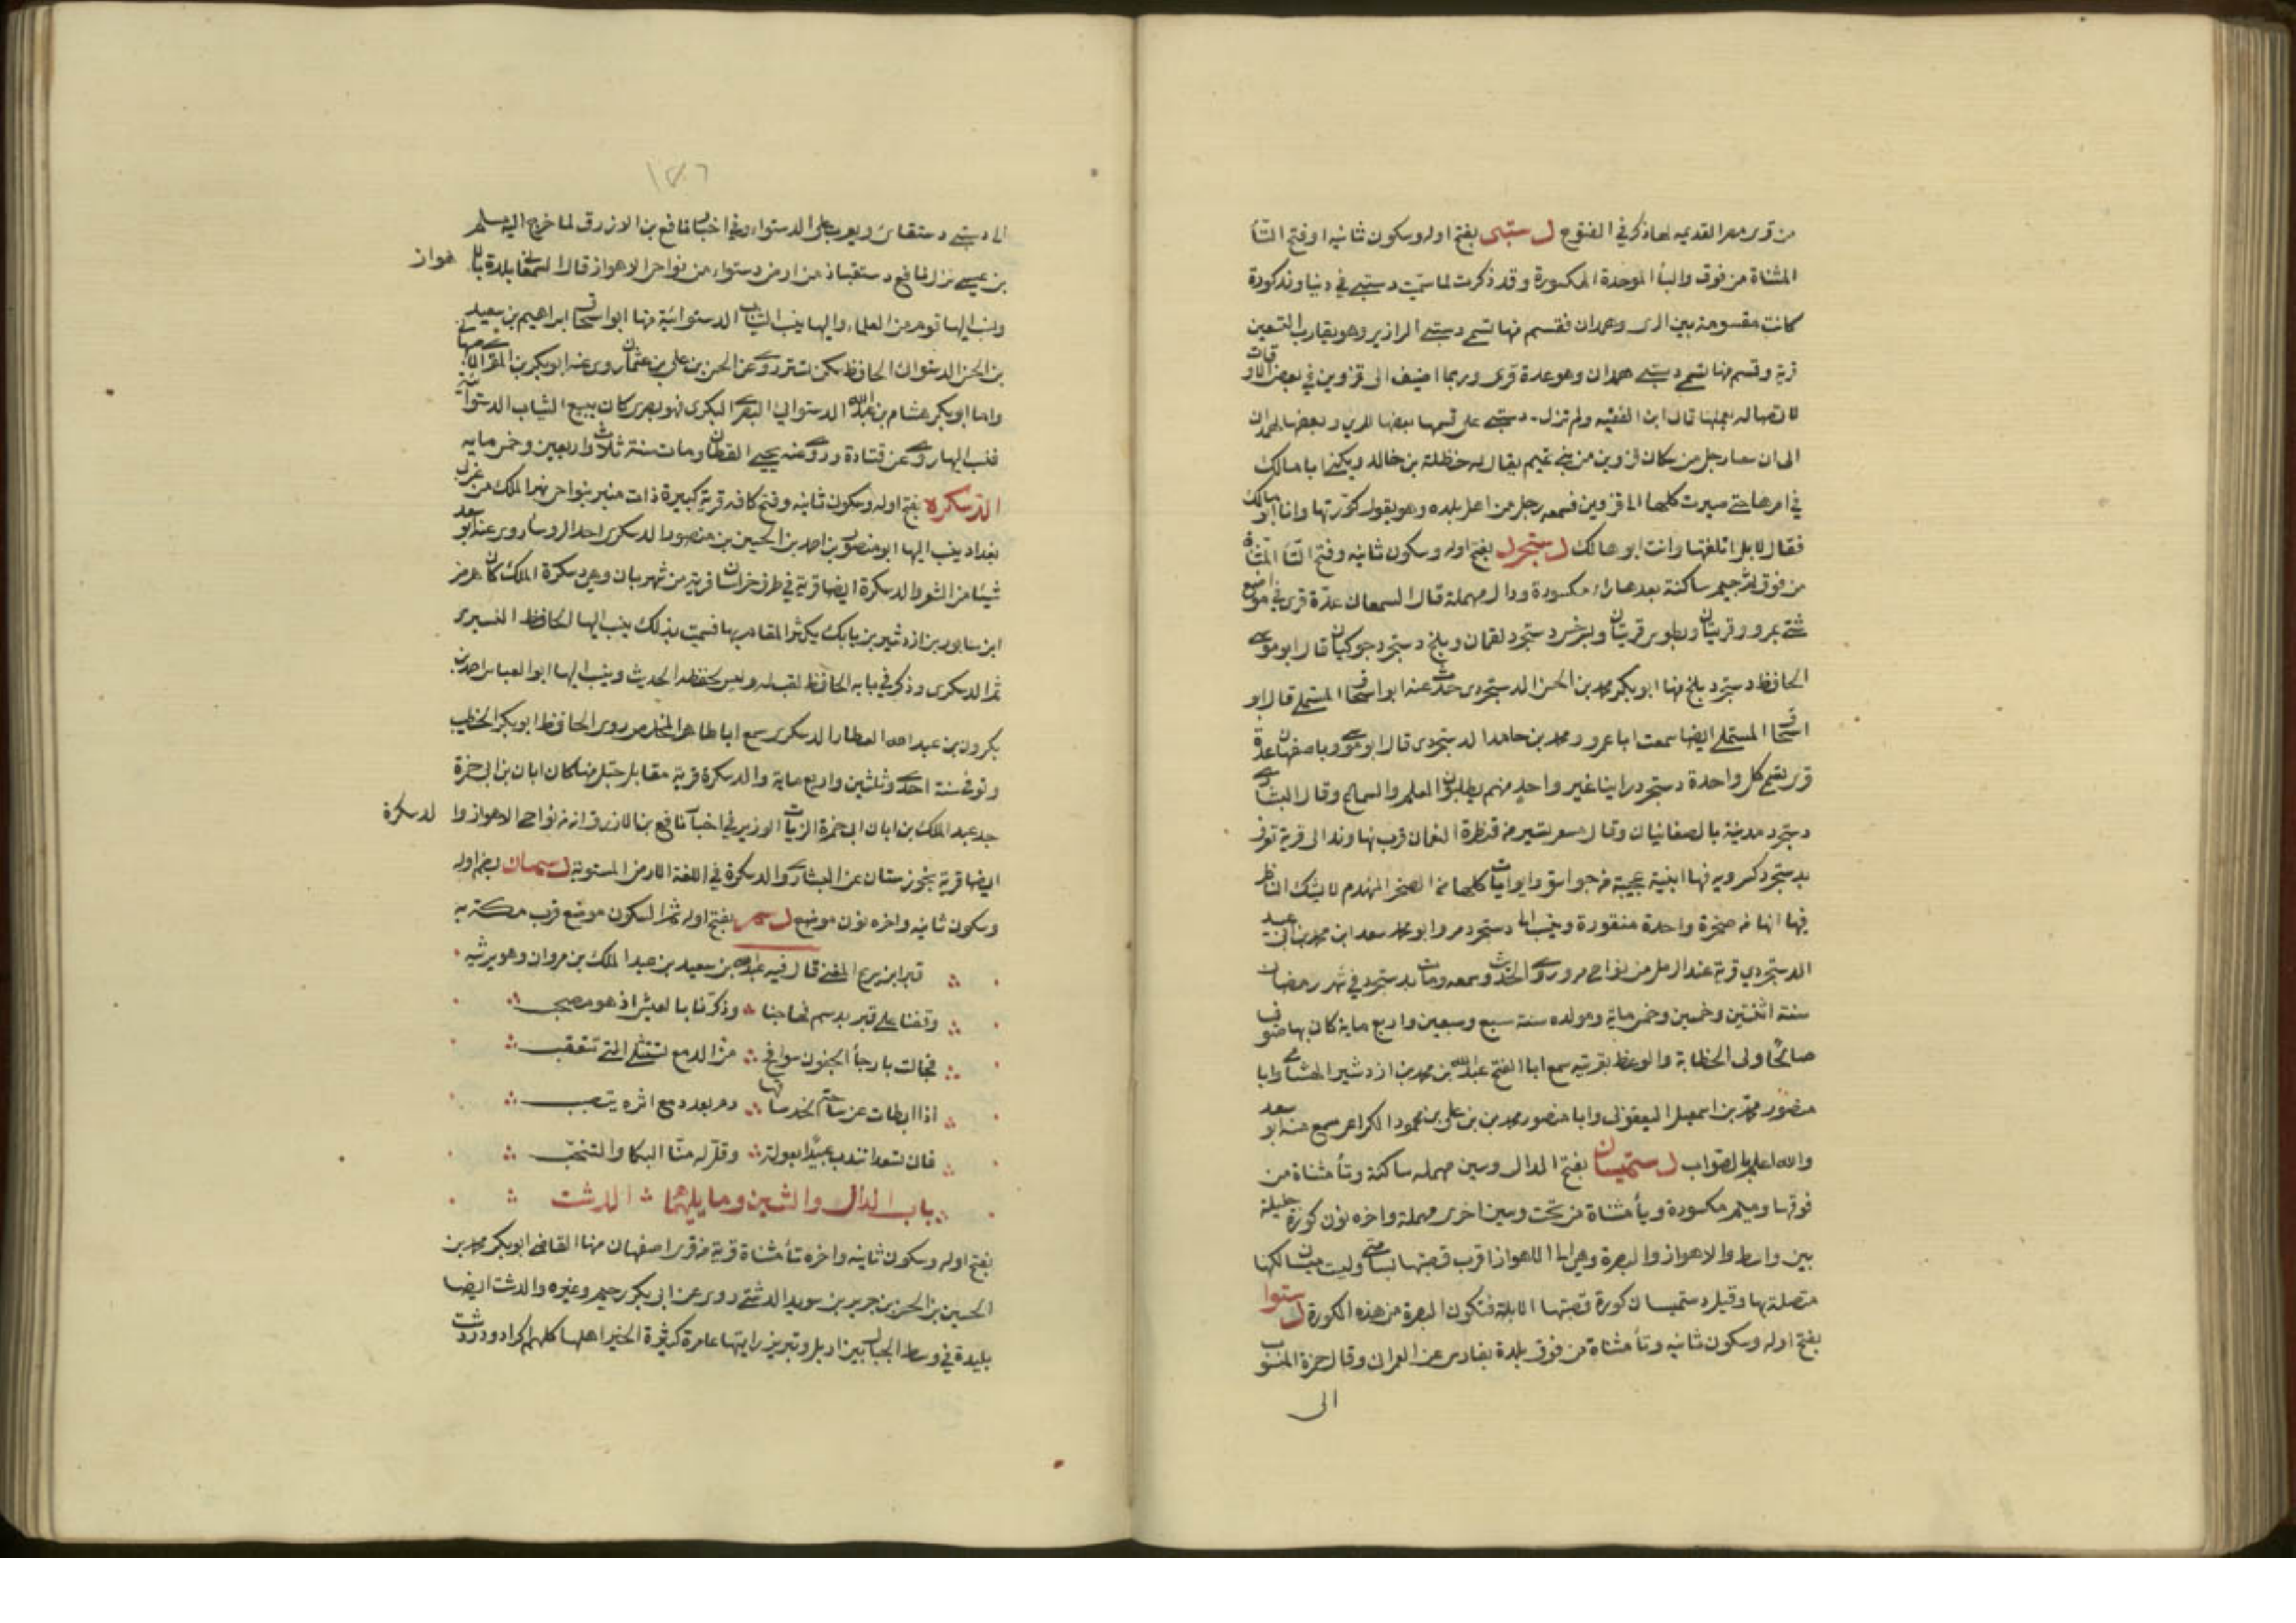 من قرى مصر القديمه لها ذكر في الفتوح دستبى بفتح اوله وسكون ثانيه وفتح التأ
المثناة من فوق والبأ الموحدة المكسورة وقد ذكرت لما سميت دستبى في دنباوند كورة
كانت مقسومة بين الرى وهمدان فقسم منها تسمى دستبى الرازى وهو يقارب التسعين
قرية وقسم منها تسمى دستبى همدان وهو عدة قرى وربما اضيف الى قزوين في بعض الاوقات
لاتصاله بعملها قال ابن الفقيه ولم تزل دستبى على قسمها بعضها للري وبعضها لهمدان
الى ان سعا رجل من سكان قزوين من بني تميم يقال له حنظلة بن خالد ويكنى ابا مالك
في امرها حتى صيرت كلها الى قزوين فسمعه رجل من اهل بلده وهو يقول كورتها وانا ابو مالك
فقال لا بل اتلفتها وانت ابو هالك دستجرد بفتح اوله وسكون ثانيه وفتح التأ المثناة
من فوق ثم جيم ساكنة بعدها راء مكسورة ودال مهملة قال السمعاني عدة قرى في مواضع
شتى بمرو قريتان وبطوس قريتان وبسرخس دستجرد لقمان وبلخ دستجرد جوكيان قال ابو موسى
الحافظ دستجرد بلخ منها ابو بكر محمد بن الحسن الدستجردى حدث عنه ابو اسحاق المستملي قال ابو
اسحاق المستملي ايضا سمعت ابا عمرو ومحمد بن حامد الدستجردى قال ابو موسى وباصفهان عدة
قرى تسمى كل واحدة دستجرد راينا غير واحد منهم يطلبون العلم والسماع وقال البشارى
دستجرد مدينة بالصغانيان وقال مسعر تسير من قنطرة النعمان قرب نهاوند الى قرية تعرف
بدستجرد كسرويه فيها ابنية عجيبة من جواسق وايوانات كلها من الصخر المهندم لا يشك الناظر
فيها انها من صخرة واحدة منقورة وينسب الى دستجرد مرو ابو محمد سعد ابن محمد بن ابي عبيد
الدستجردي قرية عند الرمل من نواحي مرو روى الحديث وسمعه ومات بدستجرد في شهر رمضان
سنة اثنتين وخمسين وخمس ماية ومولده سنة سبع وسبعين واربع ماية كان بها صوفي
صالحا ولى الخطابة والوعظ بقريته سمع ابا الفتح عبد الله بن محمد بن ازدشير الهشامي وابا
منصور محمد بن اسمعيل اليعقوبي وابا منصور محمد بن بن علي بن محمود الكراعي سمع منه ابو سعد
والله اعلم بالصواب دستميسان بفتح الدال وسين مهمله ساكنة وتأ مثناة من
فوقها وميم مكسورة ويأ مثناة من تحت وسين اخرى مهملة واخره نون كورة جليلة
بين واسط والاهواز والبصرة وهي الى الاهواز اقرب قصبتها بسامتى وليست ميسان لكنها
متصلة بها وقيل دستميسان كورة قصبتها الابلة فتكون البصرة من هذه الكورة دستوا
بفتح اوله وسكون ثانيه وتأ مثناة من فوق بلدة بفارس عن العمران وقال حمزة المنسوب
الى
١٤٦
الى دستبى دستفائ ويعرب على الدستواء وفي اخبار نافع بن الازرق لما خرج اليه مسلم
بن عبيس نزل نافع دستقباذ من ارض دستواء من نواحى الاهواز قال السمعاني بلدة بالاهواز
ونسب اليها قوم من العلماء واليها ينسب الثياب الدستوائية منها ابو اسحاق ابراهيم بن سعيد
بن الحسن الدستوائ الحافظ سكن تستر روى عن الحسن بن علي بن عثمان روى عنه ابو بكر بن المقرى الاصبهاني
واما ابو بكر هشام بن عبد الله الدستوائي البصرى البكرى فهو بصرى كان يبيع الثياب الدستوائية
فنسب اليها روى عن قتادة وروى عنه يحيى القطان ومات سنة ثلاث واربعين وخمس مايه
الدسكره بفتح اوله وسكون ثانيه وفتح كافه قرية كبيرة ذات منبر بنواحى نهر الملك من غربي
بغداد ينسب اليها ابو منصور بن احمد بن الحسين بن منصور الدسكرى احد الروسا روى عنه ابو سعد
شيئا من الشعر والدسكرة ايضا قرية في طرف خراسان قريبة من شهربان وهي دسكرة الملك كان هرمز
ابن سابور بن ازدشير بن بابك يكثر المقام بها فسميت بذلك ينسب اليها الحافظ النسيرى
ثم الدسكرى وذكر في بابه الحافظ لقب له وليس لحفظه الحديث وينسب اليها ابو العباس احمد بن
بكرون بن عبد الله العطار الدسكرى سمع ابا طاهر المخلص روى الحافظ ابو بكر الخطيب
وتوفي سنة احدى وثلثين واربع ماية والدسكرة قرية مقابل جبل منها كان ابان بن ابى حمزة
جد عبد الملك بن ابان ابى حمزة الزيات الوزير في اخبار نافع بن الازرق انه من نواحى الاهواز والدسكرة
ايضا قرية بخوزستان عن البشارى والدسكرة في اللغة الارض المستوية دسمان بضم اوله
وسكون ثانيه واخره نون موضع دسم بفتح اوله ثم السكون موضع قرب مكة به
قبر ابن سريج المغنى قال فيه عبد الله بن سعيد بن عبد الملك بن مروان وهو يرثيه
وقفنا على قبر بدسم فهاجنا وذكرنا بالعيش اذ هو مصحب
فجالت بارجأ الجفون سوافح من الدمع تستتلي التي تتعقب
اذا ابطات عن ساحة الخد ساقها دم بعد دمع اثره يتصبب
فان تسعدا نندب عبيدا بعولة وقل له منا البكا والتنحب
باب الدال والشين وما يليهما الدشت
بفتح اوله وسكون ثانيه واخره تأ مثناة قرية من قرى اصفهان منها القاضي ابو بكر محمد بن
الحسين بن الحسن بن جرير بن سويد الدشتى روى عن ابى بكر رحيم وغيره والدشت ايضا
بليدة في وسط الجبال بين اربل وتبريز رايتها عامرة كثيرة الخير اهلها كلهم اكراد ودردشت